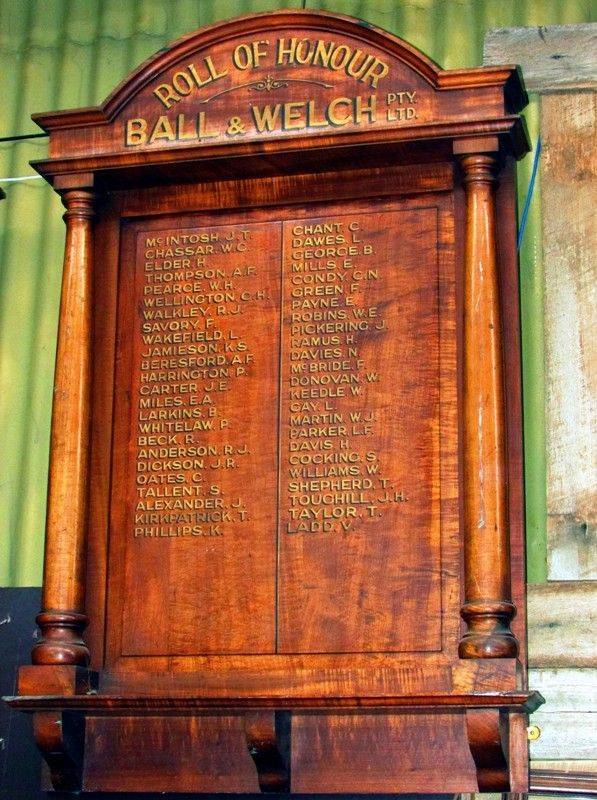 ROLL OF HONOUR
BALL & WELCH PTY. LTD.
McINTOSH. J. T.
CHASSAR. W. G.
ELDER. H.
THOMPSON. A. F.
PEARCE. W. H.
WELLINGTON. C. H.
WALKLEY. R. J.
SAVORY. F.
WAKEFIELD. L.
JAMIESON. K. S.
BERESFORD. A. F.
HARRINGTON. P.
CARTER. J. E.
MILES. E. A.
LARKINS. B.
WHITELAW. P.
BECK. R.
ANDERSON. R. J.
DICKSON. J. R.
OATES. C.
TALLENT. S.
ALEXANDER. J.
KIRKPATRICK. T.
PHILLIPS. K.
CHANT. C.
DAWES. L.
GEORGE. B.
MILLS. E.
CONDY. C. N.
GREEN. F.
PAYNE. E.
ROBINS. W. E.
PICKERING. J.
RAMUS. H.
DAVIES. N.
McBRIDE. F.
DONOVAN. W.
KEEDLE. W.
GAY. L.
MARTIN. W. J.
PARKER. L. F.
DAVIS. H.
COCKING. S.
WILLIAMS. W.
SHEPHERD. T.
TOUGHILL. J. H.
TAYLOR. T.
LADD. V.